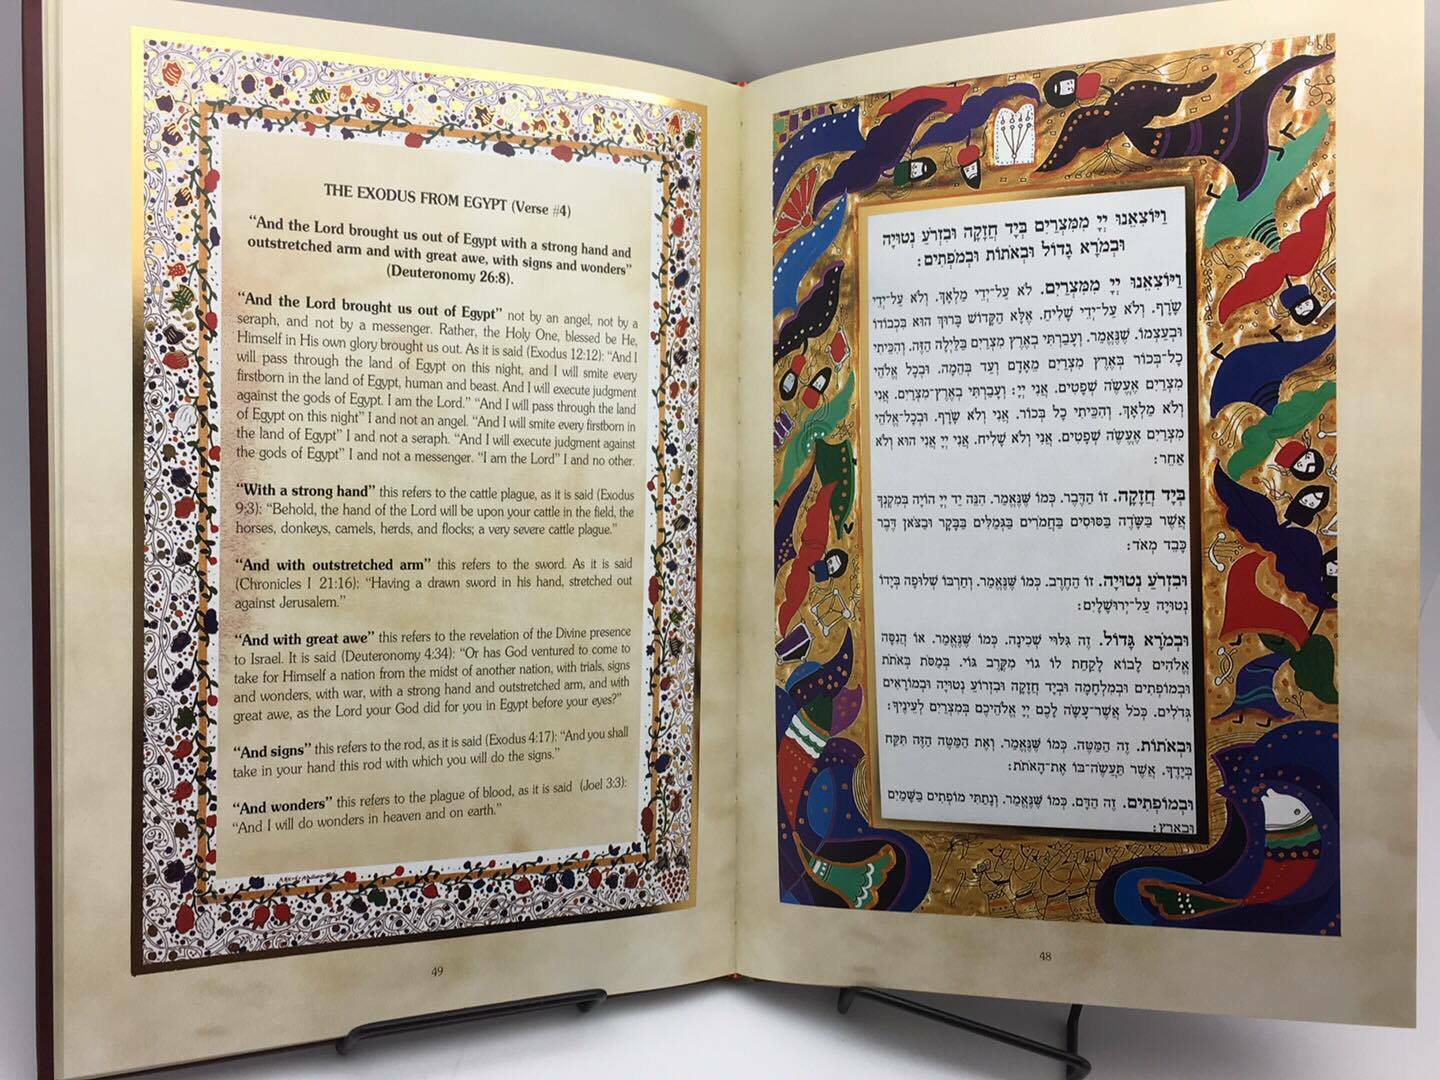 THE EXODUS FROM EGYPT (Verse #4)
“And the Lord brought us out of Egypt with a strong hand and
outstretched arm and with great awe, with signs and wonders”
(Deuteronomy 26:8).
“And the Lord brought us out of Egypt” not by an angel, not by a
seraph, and not by a messenger. Rather, the Holy One, blessed be He,
Himself in His own glory brought us out. As it is said (Exodus 12:12): “And I
will pass through the land of Egypt on this night, and I will smite every
firstborn in the land of Egypt, human and beast. And I will execute judgment
against the gods of Egypt. I am the Lord.” “And I will pass through the land
of Egypt on this night” I and not an angel. “And I will smite every firstborn in
the land of Egypt” I and not a seraph. “And I will execute judgment against
the gods of Egypt” I and not a messenger. “I am the Lord” I and no other.
“With a strong hand” this refers to the cattle plague, as it is said (Exodus
9:3): “Behold, the hand of the Lord will be upon your cattle in the field, the
horses, donkeys, camels, herds, and flocks; a very severe cattle plague.”
“And with outstretched arm” this refers to the sword. As it is said
(Chronicles I 21:16): “Having a drawn sword in his hand, stretched out
against Jerusalem.”
“And with great awe” this refers to the revelation of the Divine presence
to Israel. It is said (Deuteronomy 4:34): “Or has God ventured to come to
take for Himself a nation from the midst of another nation, with trials, signs
and wonders, with war, with a strong hand and outstretched arm, and with
great awe, as the Lord your God did for you in Egypt before your eyes?”
“And signs” this refers to the rod, as it is said (Exodus 4:17): “And you shall
take in your hand this rod with which you will do the signs.”
“And wonders” this refers to the plague of blood, as it is said (Joel 3:3):
“And I will do wonders in heaven and on earth.”
49
וַיּוֹצִאֵנוּ יְיָ מִמִּצְרַיִם בְּיָד חֲזָקָה וּבִזְרֹעַ נְטוּיָה
וּבְמֹרָא גָּדוֹל וּבְאֹתוֹת וּבְמֹפְתִים:
וַיּוֹצִאֵנוּ יְיָ מִמִּצְרַיִם. לֹא עַל־יְדֵי מַלְאָךְ. וְלֹא עַל־יְדֵי
שָׂרָף. וְלֹא עַל־יְדֵי שָׁלִיחַ. אֶלָּא הַקָּדוֹשׁ בָּרוּךְ הוּא בִּכְבוֹדוֹ
וּבְעַצְמוֹ. שֶׁנֶּאֱמַר. וְעָבַרְתִּי בְאֶרֶץ מִצְרַיִם בַּלַּיְלָה הַזֶּה. וְהִכֵּיתִי
כָל־בְּכוֹר בְּאֶרֶץ מִצְרַיִם מֵאָדָם וְעַד בְּהֵמָה. וּבְכָל אֱלֹהֵי
מִצְרַיִם אֶעֱשֶׂה שְׁפָטִים. אֲנִי יְיָ: וְעָבַרְתִּי בְאֶרֶץ־מִצְרַיִם. אֲנִי
וְלֹא מַלְאָךְ. וְהִכֵּיתִי כָל בְּכוֹר. אֲנִי וְלֹא שָׂרָף. וּבְכָל־אֱלֹהֵי
מִצְרַיִם אֶעֱשֶׂה שְׁפָטִים. אֲנִי וְלֹא שָׁלִיחַ. אֲנִי יְיָ אֲנִי הוּא וְלֹא
אַחֵר:
בְּיָד חֲזָקָה. זוֹ הַדֶּבֶר. כְּמוֹ שֶׁנֶּאֱמַר. הִנֵּה יַד יְיָ הוֹיָה בְּמִקְנְךָ
אֲשֶׁר בַּשָּׂדֶה בַּסּוּסִים בַּחֲמֹרִים בַּגְּמַלִּים בַּבָּקָר וּבַצֹּאן דֶּבֶר
כָּבֵד מְאֹד:
וּבִזְרֹעַ נְטוּיָה. זוֹ הַחֶרֶב. כְּמוֹ שֶׁנֶּאֱמַר. וְחַרְבּוֹ שְׁלוּפָה בְּיָדוֹ
נְטוּיָה עַל־יְרוּשָׁלָיִם:
וּבְמֹרָא גָּדוֹל. זֶה גִּלּוּי שְׁכִינָה. כְּמוֹ שֶׁנֶּאֱמַר. אוֹ הֲנִסָּה
אֱלֹהִים לָבוֹא לָקַחַת לוֹ גוֹי מִקֶּרֶב גּוֹי. בְּמַסֹּת בְּאֹתֹת
וּבְמוֹפְתִים וּבְמִלְחָמָה וּבְיָד חֲזָקָה וּבִזְרוֹעַ נְטוּיָה וּבְמוֹרָאִים
גְּדֹלִים. כְּכֹל אֲשֶׁר־עָשָׂה לָכֶם יְיָ אֱלֹהֵיכֶם בְּמִצְרַיִם לְעֵינֶיךָ:
וּבְאֹתוֹת. זֶה הַמַּטֶּה. כְּמוֹ שֶׁנֶּאֱמַר. וְאֶת הַמַּטֶּה הַזֶּה תִּקַּח
בְּיָדֶךָ. אֲשֶׁר תַּעֲשֶׂה־בּוֹ אֶת־הָאֹתֹת:
וּבְמוֹפְתִים. זֶה הַדָּם. כְּמוֹ שֶׁנֶּאֱמַר. וְנָתַתִּי מוֹפְתִים בַּשָּׁמַיִם
וּבָאָרֶץ:
48